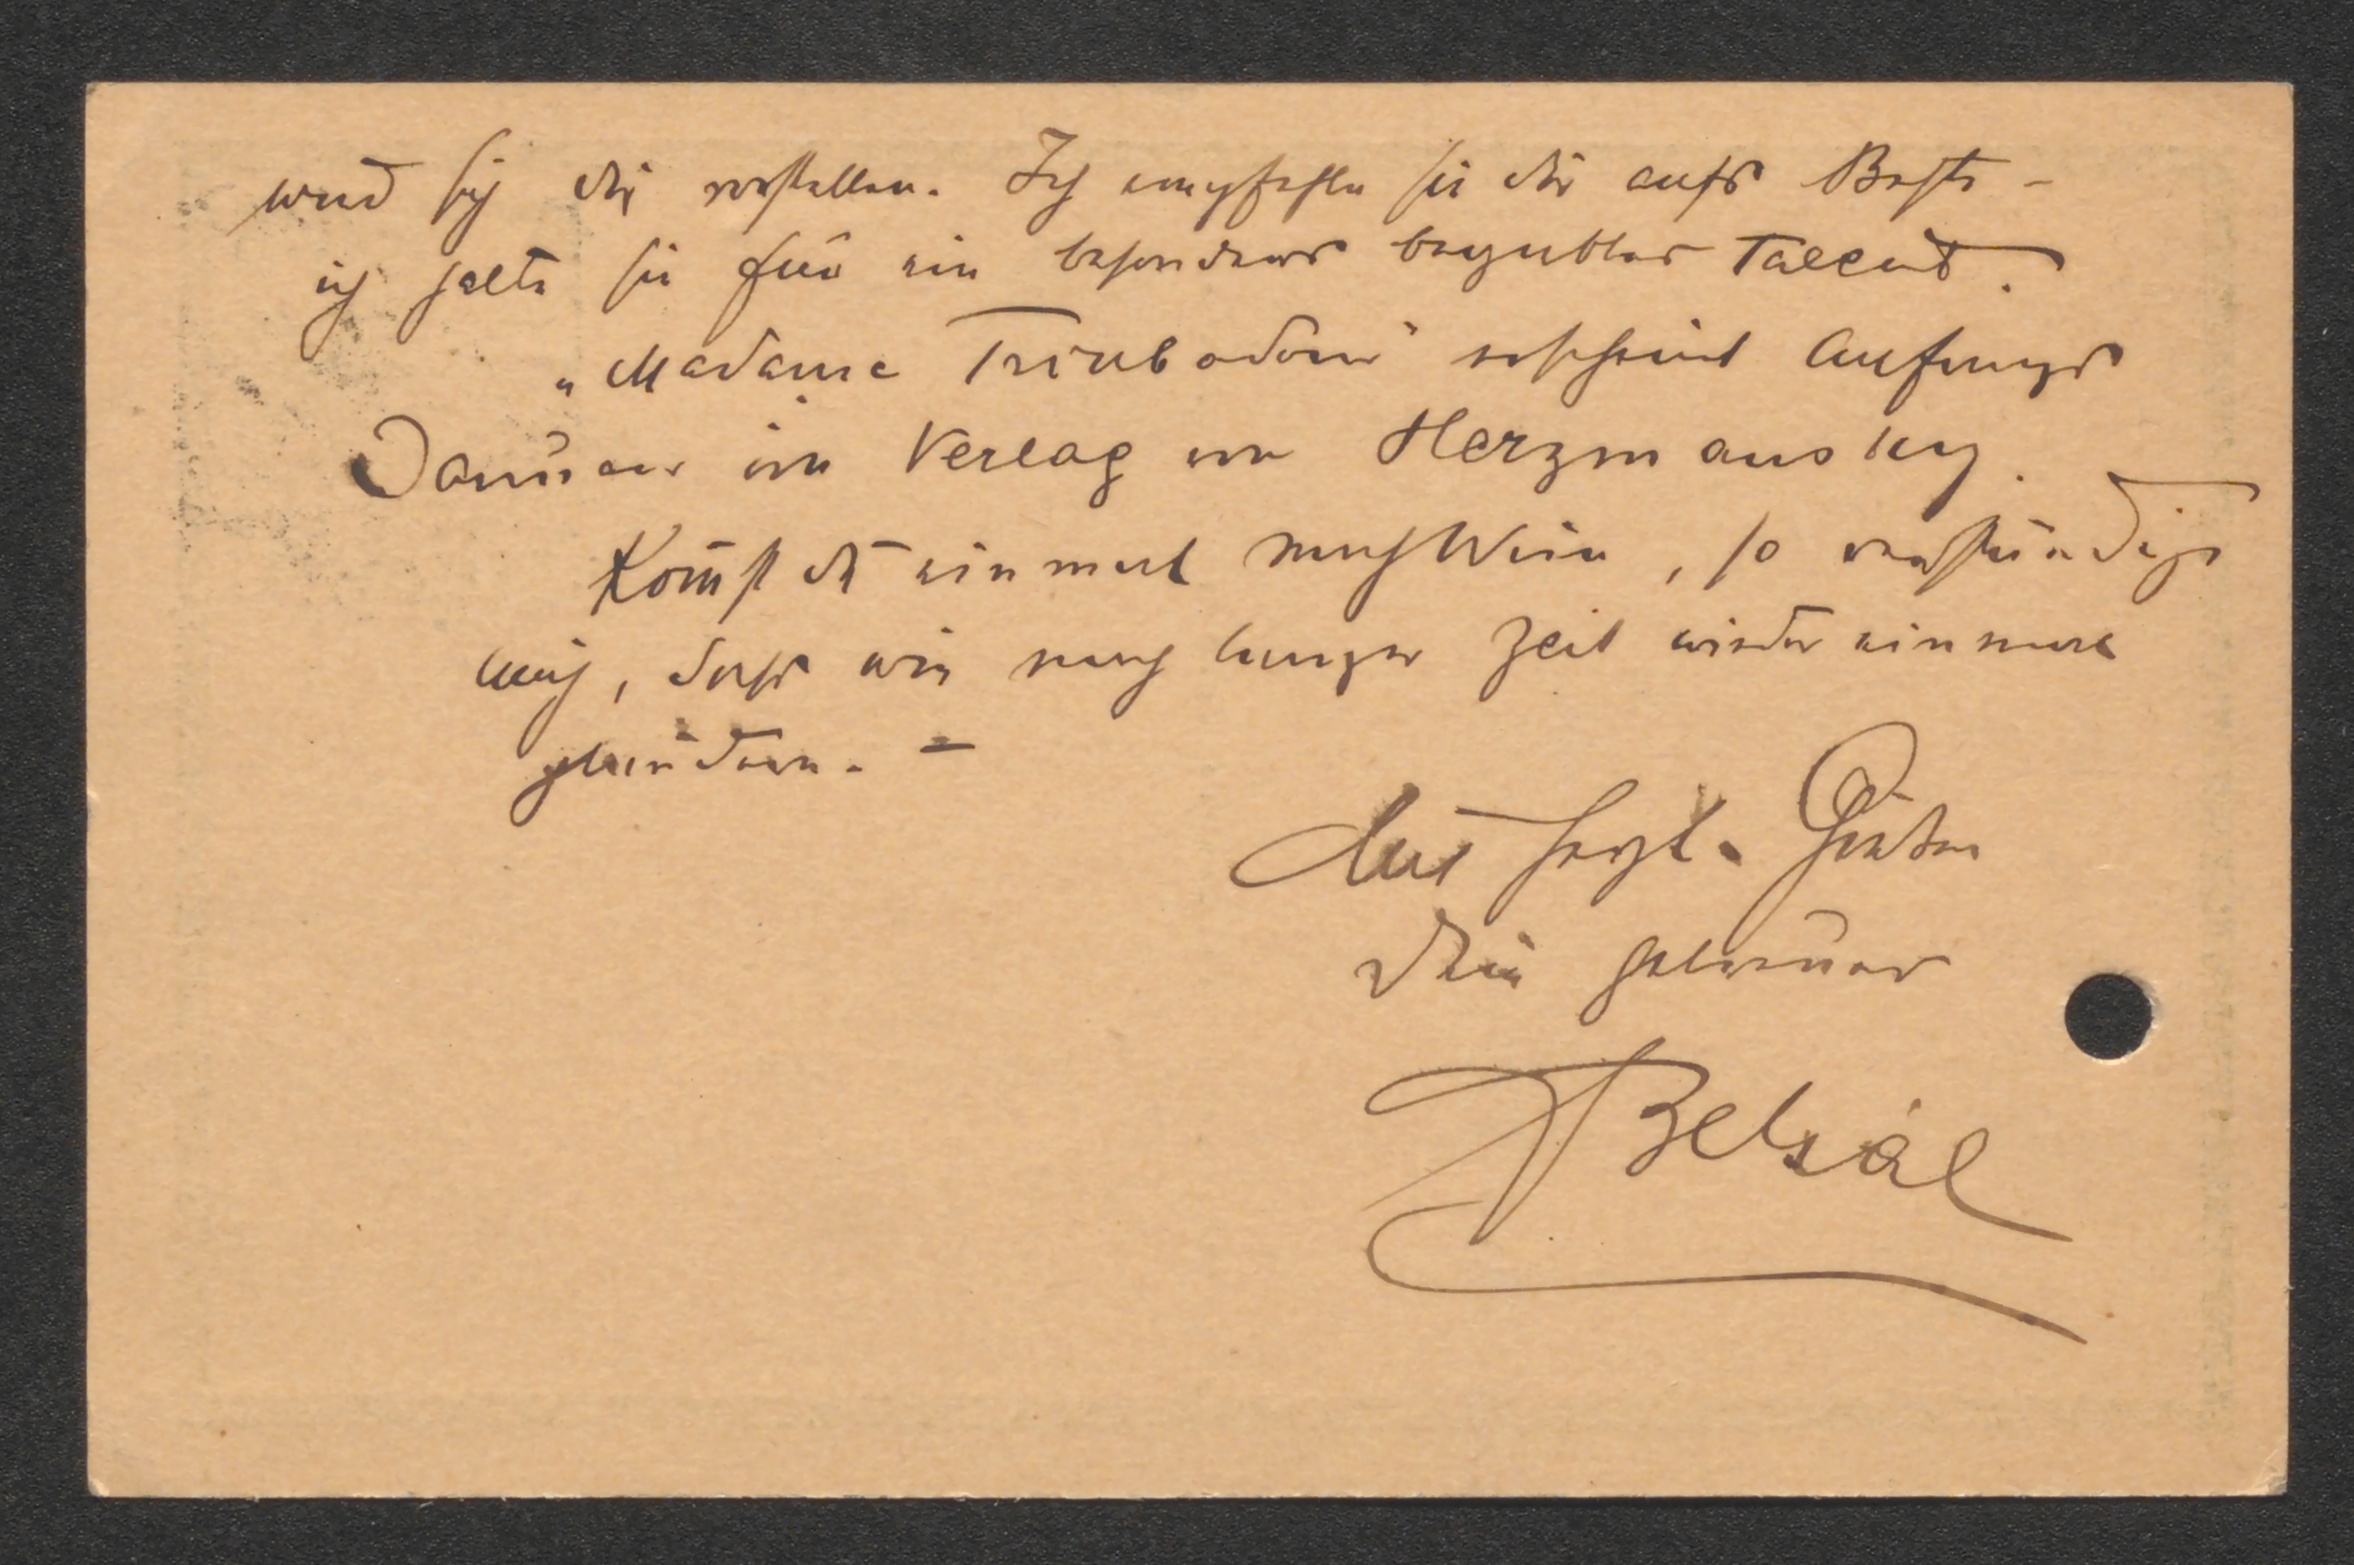 wird sich dir vorstellen. Ich empfehle sie dir aufs Beste –
ich halte sie für ein besonders begabtes Talent.
„Madame Troubadour" erscheint Anfangs
Januar im Verlag von Herzmansky.
Kom̅st du einmal nach Wien, so verständige
mich, dass wir nach langer Zeit wieder einmal
plaudern. –
Mit herzl. Grüßen
dein getreuer
Batka